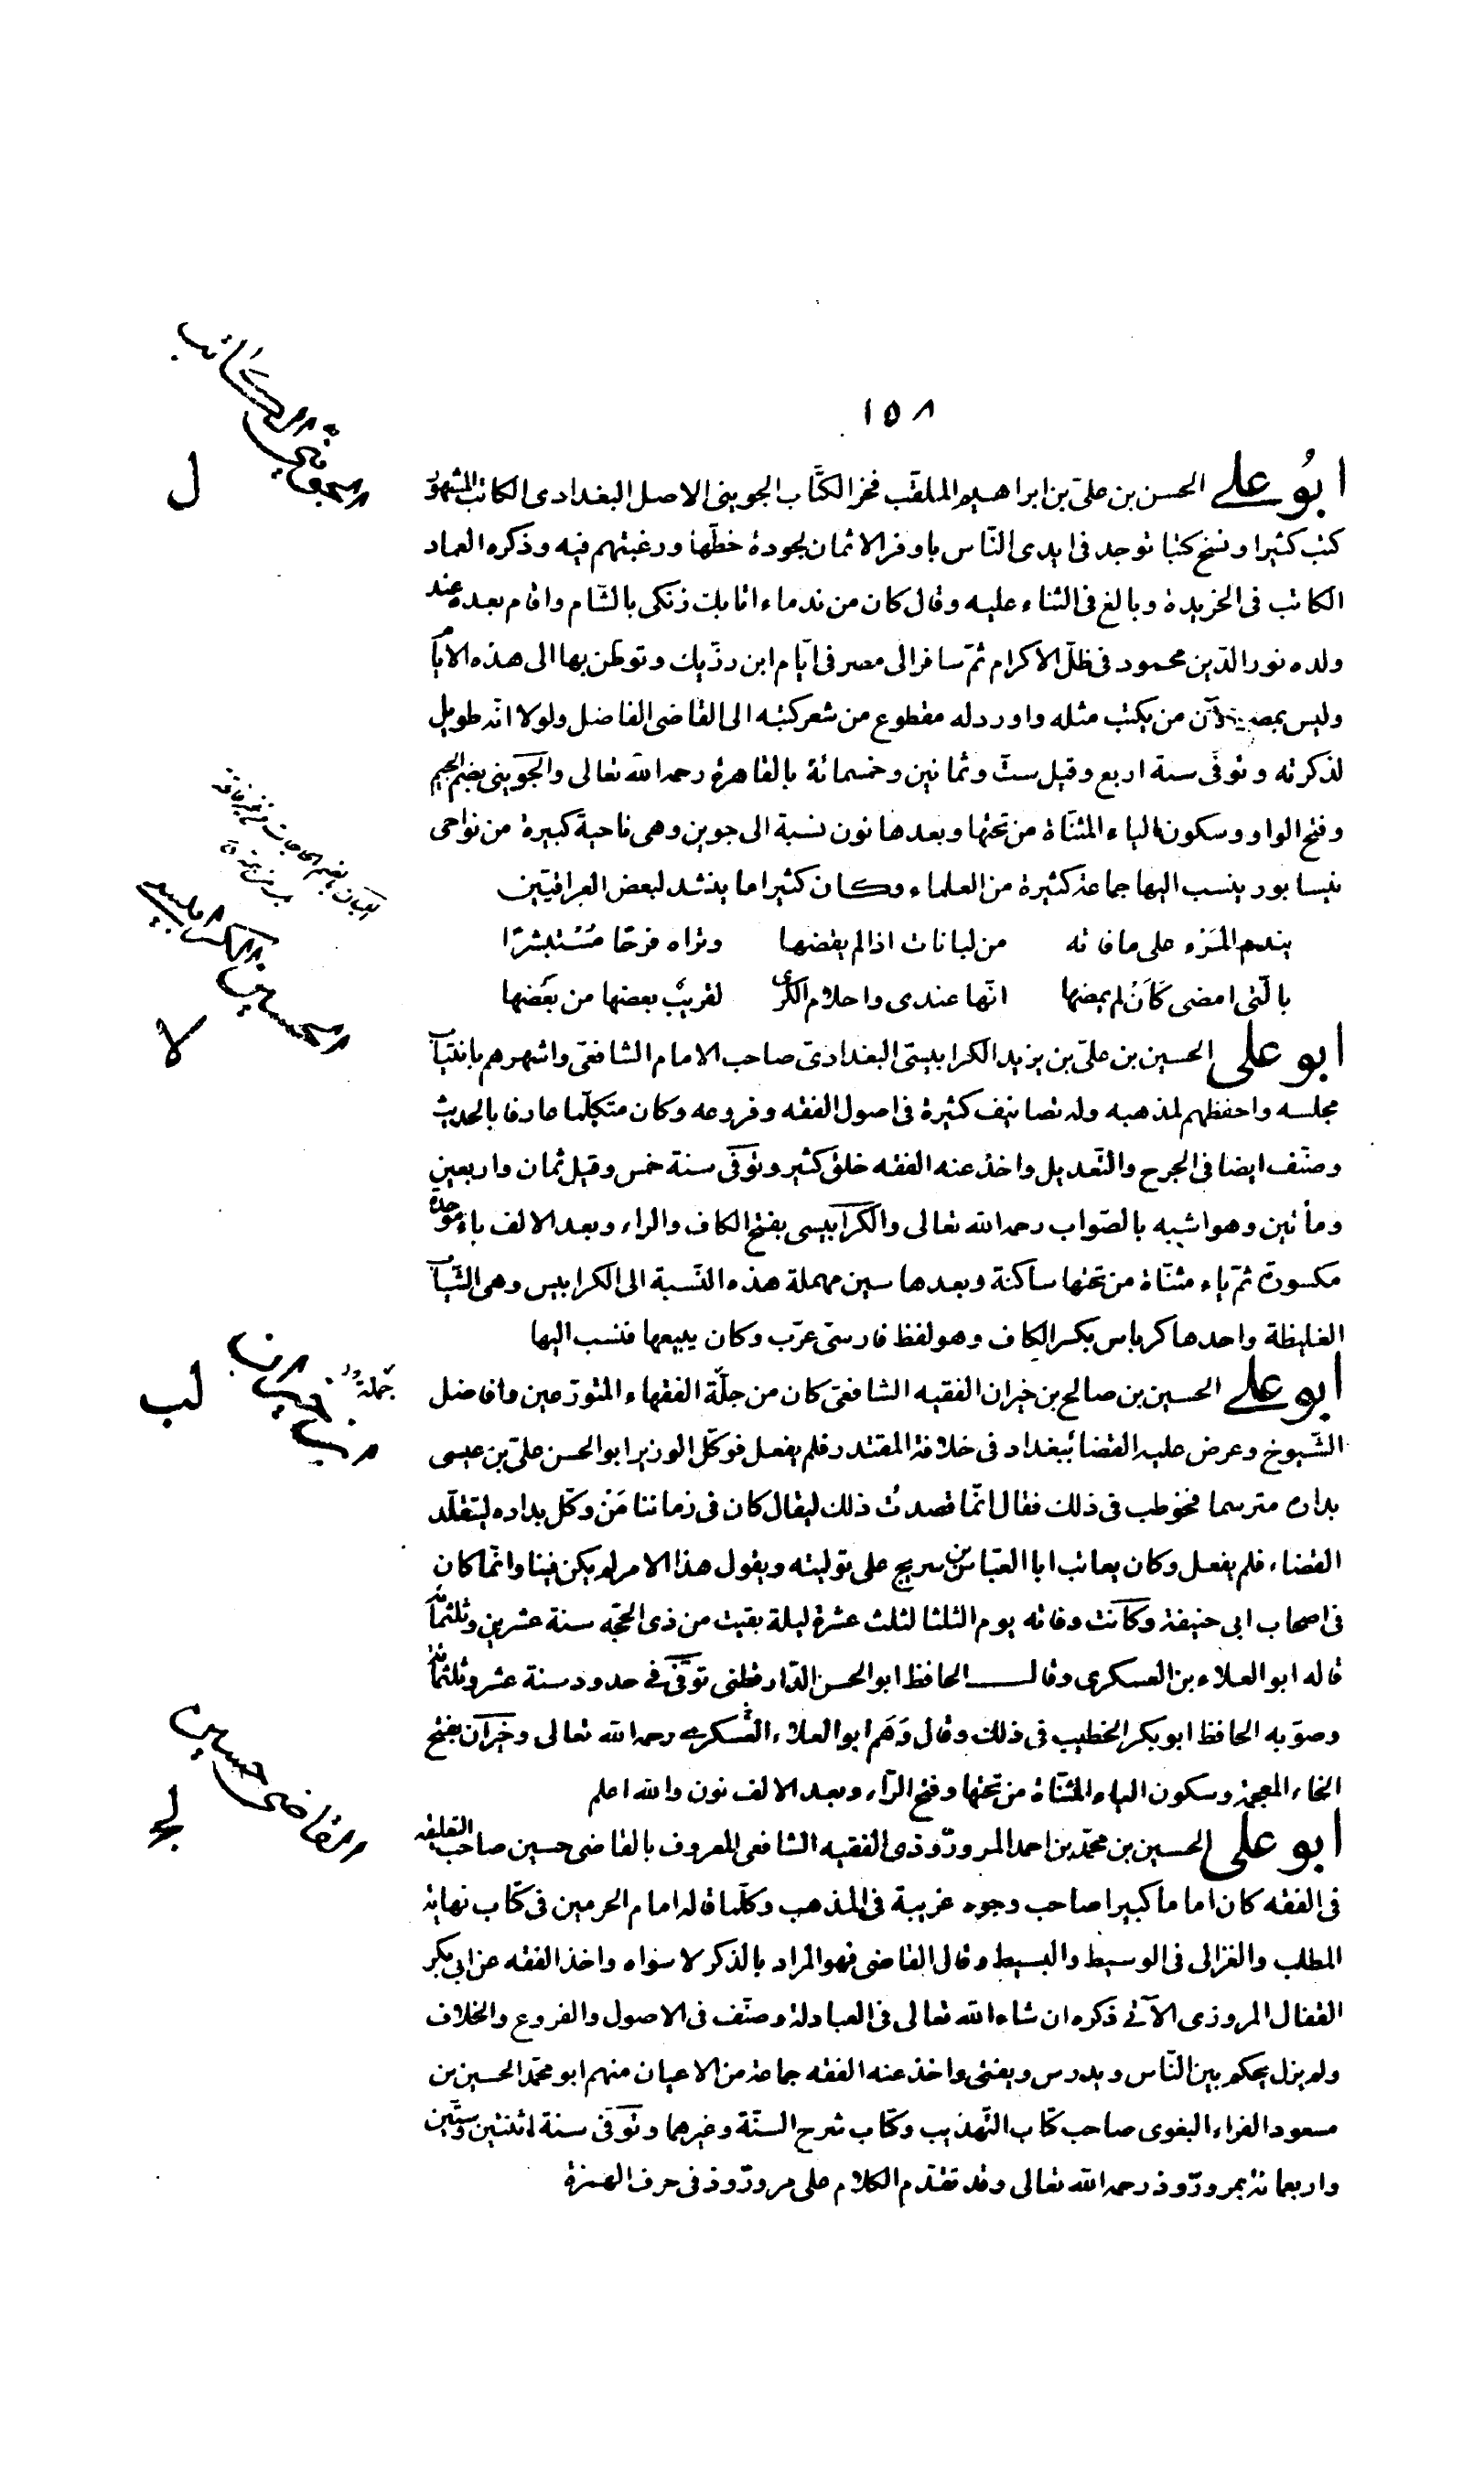 ١٥٨
ابُو علي الحسن بن علىّ بن ابراهيم الملقّب فخر الكتّاب الجوينى الاصل البغدادى الكاتب المشهور
كتب كثيرا ونسخ كتبا توجد فى ايدى النّاس باوفر الاثمان لجودة خطّها ورغبتهم فيه وذكره العماد
الكاتب فى الخريدة وبالغ فى الثناء عليه وقال كان من ندماء اتابك زنكى بالشام واقام بعده عند
ولده نور الدّين محمود فى ظلّ الاكرام ثمّ سافر الى مصر فى ايّام ابن رزّيك وتوطن بها الى هذه الايّام
وليس بمصر الآن من يكتب مثله واورد له مقطوع من شعر كتبه الى القاضى الفاضل ولولا انّه طويل
لذكرته وتوفّى سنة اربع وقيل ستّ وثمانين وخمسمائة بالقاهرة رحمه الله تعالى والجوينى بضم الجيم
وفتح الواو وسكون الياء المثنّاة من تحتها وبعدها نون نسبة الى جوين وهى ناحية كبيرة من نواحى
نيسابور ينسب اليها جماعة كثيرة من العلماء وكان كثيرا ما ينشد لبعض العراقيّين
يندم المَرء على ما فاته من لبانات اذا لم يقضها وتراه فرحًا مُسْتبشرًا
بالّتى امضى كَاَنْ لم يمضها انّها عندى واحلام الكرى لقريبٌ بعضها من بعَضها
ابو على الحسين بن علىّ بن يزيد الكرابيسىّ البغدادىّ صاحب الامام الشافعىّ واشهرهم بانتياب
مجلسه واحفظهم لمذهبه وله تصانيف كثيرة فى اصول الفقه وفروعه وكان متكلّما عارفا بالحديث
وصنّف ايضا فى الجرح والتّعديل واخذ عنه الفقه خلق كثير وتوفّى سنة خمس وقيل ثمان واربعين
ومأتين وهو اشبه بالصّواب رحمه الله تعالى والكرابيسى بفتح الكاف والراء وبعد الالف باء موحدة
مكسورة ثمّ ياء مثنّاة من تحتها ساكنة وبعدها سين مهملة هذه النّسبة الى الكرابيس وهى الثّياب
الغليظة واحدها كرباس بكسر الكاف وهو لفظ فارسىّ عرّب وكان يبيعها فنسب اليها
ابو علي الحسين بن صالح بن خيران الفقيه الشافعىّ كان من جلّة الفقهاء المتورّعين وافاضل
الشّيوخ وعرض عليه القضا ببغداد فى خلافة المقتدر فلم يفعل فوكّل الوزير ابو الحسن علىّ بن عيسى
بداره مترسما فخوطب فى ذلك فقال انّما قصدتُ ذلك ليقال كان فى زماننا مَنْ وكّل بداره ليتقلّد
القضاء فلم يفعل وكان يعاتب ابا العبّاس بن سريج على توليته ويقول هذا الامر لم يكن فينا وانّما كان
فى اصحاب ابى حنيفة وكانت وفاته يوم الثلثا لثلث عشرة ليلة بقيت من ذى الحجّه سنة عشرين وثلثمائة
قاله ابو العلاء بن العسكرى وقال الحافظ ابو الحسن الدّارقطنى توفّى فى حدود سنة عشر وثلثمائة
وصوّبه الحافظ ابو بكر الخطيب فى ذلك وقال وَهَم ابو العلاء العسكرى رحمه الله تعالى وخيران بفتح
الخاء المعجمة وسكون الياء المثنّاة من تحتها وفتح الرّاء وبعد الالف نون والله اعلم
ابو على الحسين بن محمّد بن احمد المرورّوذى الفقيه الشافعى المعروف بالقاضى حسين صاحب التعليقه
فى الفقه كان اماما كبيرا صاحب وجوه غريبة فى المذهب وكلّما قاله امام الحرمين فى كتاب نهاية
المطلب والغزالى فى الوسيط والبسيط وقال القاضى فهو المراد بالذكر لا سواه واخذ الفقه عن ابى بكر
القفال المروزى الآتى ذكره ان شاء الله تعالى فى العبادلة وصنّف فى الاصول والفروع والخلاف
ولم يزل يحكم بين النّاس ويدرس ويفتى واخذ عنه الفقه جماعة من الاعيان منهم ابو محمّد الحسين بن
مسعود الفراء البغوى صاحب كتاب التّهذيب وكتاب شرح السنّة وغيرهما وتوفّى سنة اثنتين وستّين
واربعمائة بمرورّوذ رحمه الله تعالى وقد تقدّم الكلام على مرورّوذ فى حرف الهمزة
الجوينى الكاتب
ل
الحسين الكرابيسى
لا
بن خيران
لب
القاضى حسين
لج